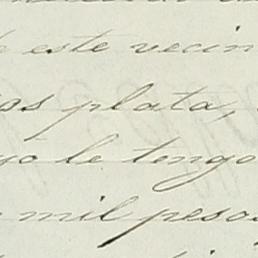 este vecin
os plata,
yo le tengo
mil pesos